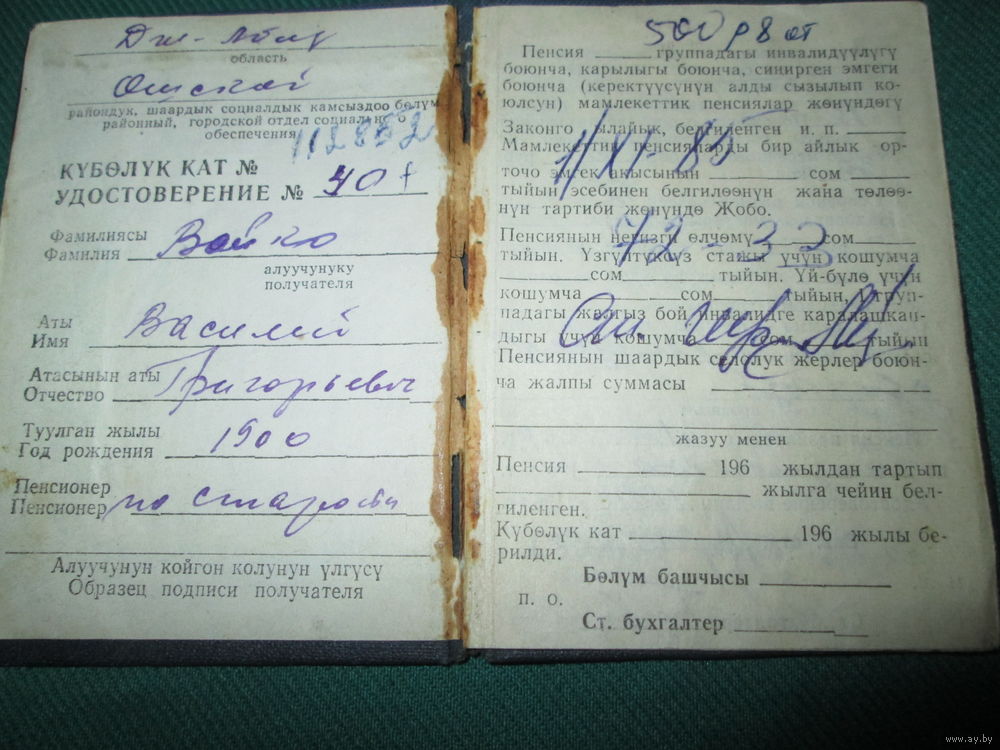 Дж-Абад
область
Ошской
райондук, шаардык социалдык камсыздоо бөлүм
районный, городской отдел социального
обеспечения
КҮБӨЛҮК КАТ №
УДОСТОВЕРЕНИЕ №
Фамилиясы
Фамилия Бойко
алуучунуку
получателя
Аты
Имя Василий
Атасынын аты
Отчество Григорьевич
Туулган жылы
Год рождения 1900
Пенсионер
Пенсионер по старости
Алуучунун койгон колунун үлгүсү
Образец подписи получателя
500 р 8 от
Пенсия группадагы инвалидүүлүгү
боюнча, карылыгы боюнча, синирген эмгеги
боюнча (керектүүсүнүн алды сызылып ко-
юлсун) мамлекеттик пенсиялар жөнүндөгү
Законго ылайык, белгиленген и. п.
Мамлекеттик пенсияларды бир айлык ор-
11/XI-85
точо эмгек акысынын сом
тыйын эсебинен белгилөөнүн жана төлөө-
нүн тартиби жөнүндө Жобо.
Пенсиянын негизги өлчөмү 72-33 сом
тыйын. Үзгүлтүксүз стажы үчүн кошумча
сом тыйын. Үй-бүлө үчүн
кошумча сом тыйын, груп-
падагы жалгыз бой инвалидге каралашкан-
дыгы үчүн кошумча сом тыйын
Пенсиянын шаардык селолук жерлер боюн-
ча жалпы суммасы
жазуу менен
Пенсия 196 жылдан тартып
жылга чейин бел-
гиленген.
Күбөлүк кат 196 жылы бе-
рилди.
Бөлүм башчысы
п. о.
Ст. бухгалтер
www.ay.by